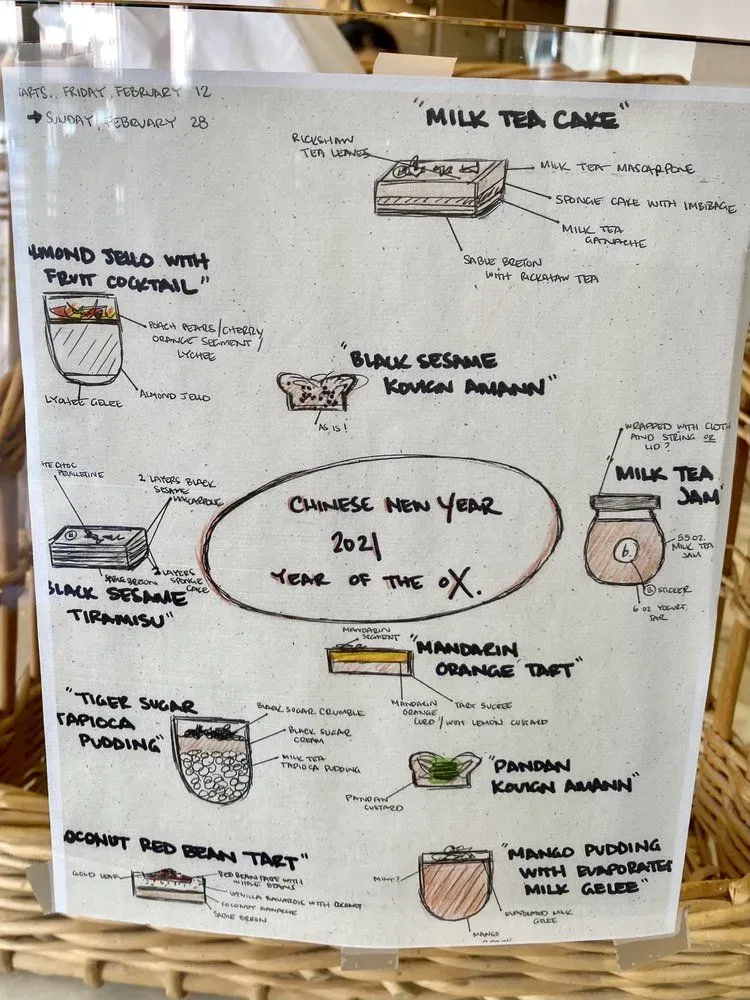 TARTS.. FRIDAY, FEBRUARY 12
→ SUNDAY, FEBRUARY 28
"MILK TEA CAKE"
RICKSHAW
TEA LEAVES
MILK TEA MASCARPONE
SPONGE CAKE WITH IMBIBAGE
MILK TEA
GANACHE
SABLE BRETON
WITH RICKSHAW TEA
LMOND JELLO WITH
FRUIT COCKTAIL"
POACH PEARS/CHERRY/
ORANGE SEGMENT/
LYCHEE
ALMOND JELLO
LYCHEE GELEE
"BLACK SESAME
KOUIGN AMANN"
AS IS!
WRAPPED WITH CLOTH
AND STRING OR
LID?
MILK TEA
JAM"
b.
5.5 OZ.
MILK TEA
JAM
B STICKER
6 OZ YOGURT
JAR
TE CHOC
FEUILLETINE
2 LAYERS BLACK
SESAME
MASCARPONE
SABLE BRETON
LAYERS
SPONGE
CAKE
BLACK SESAME
TIRAMISU"
CHINESE NEW YEAR
2021
YEAR OF THE OX.
MANDARIN
SEGMENT
"MANDARIN
ORANGE TART"
MANDARIN
ORANGE
CURD/WITH LEMON CUSTARD
TART SUCREE
"TIGER SUGAR
TAPIOCA
PUDDING"
BLACK SUGAR CRUMBLE
BLACK SUGAR
CREAM
MILK TEA
TAPIOCA PUDDING
"PANDAN
KOUIGN AMANN"
PANDAN
CUSTARD
OCONUT RED BEAN TART"
GOLD LEAF
RED BEAN PATE WITH
WHOLE BEANS
VANILLA BAVAROIS WITH COCONUT
COCONUT GANACHE
SABLE BRETON
"MANGO PUDDING
WITH EVAPORATED
MILK GELEE"
MINT?
EVAPORATED MILK
GELEE
MANGO